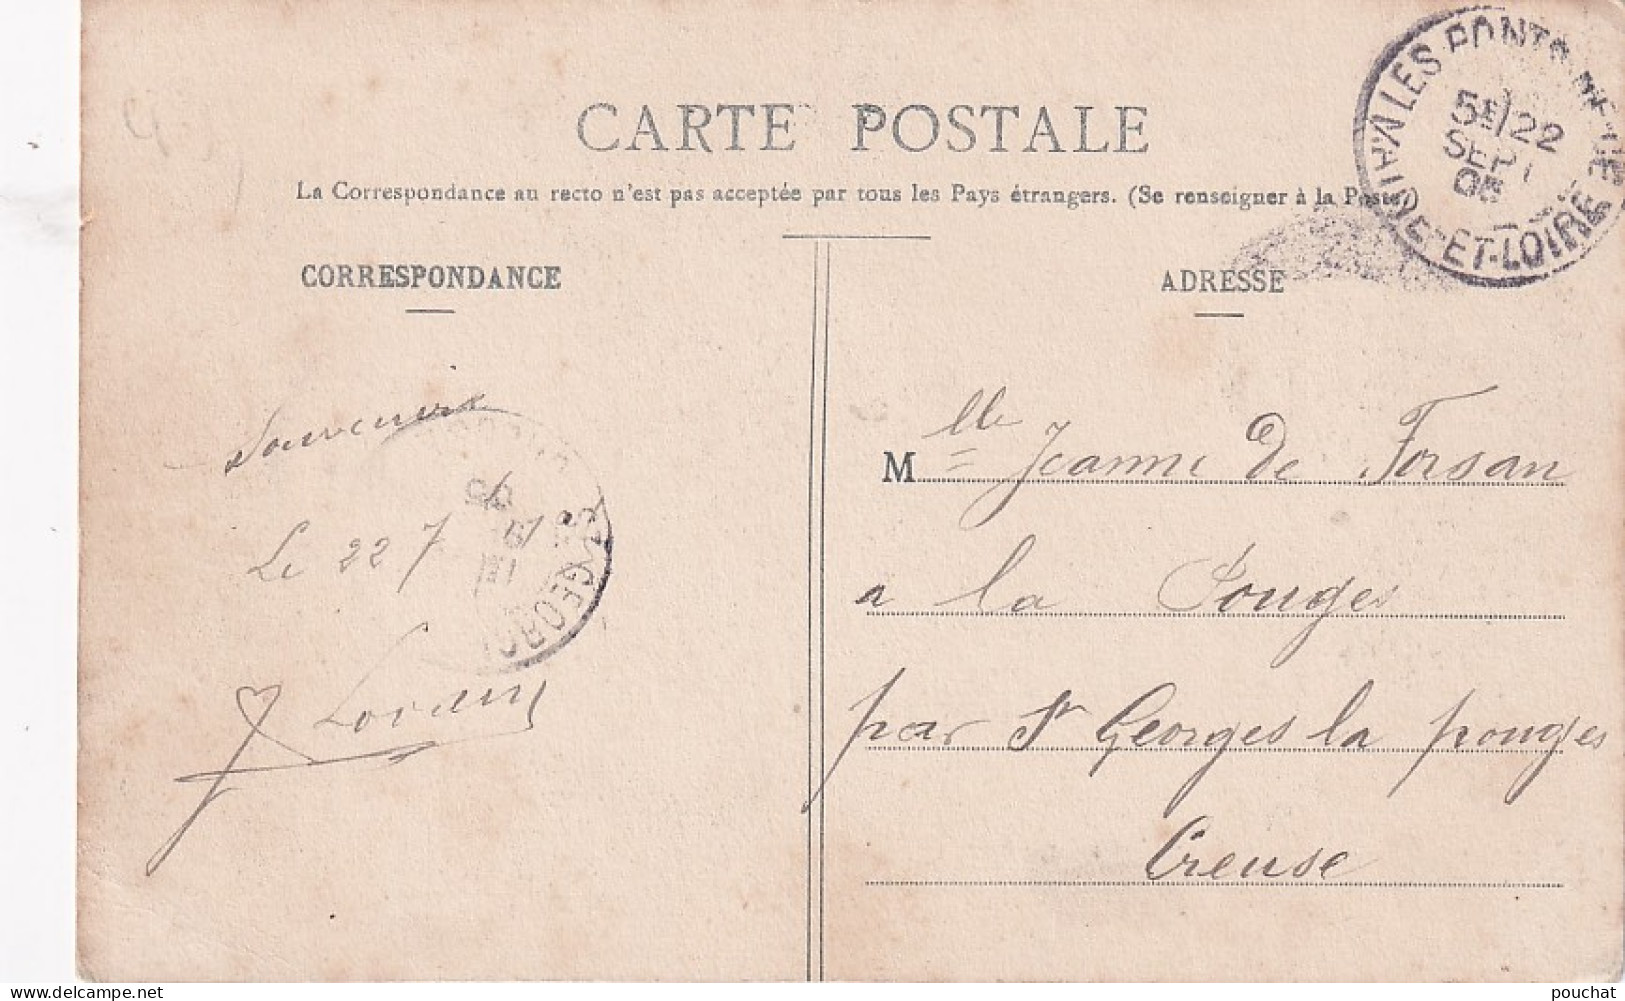 CARTE POSTALE
La Correspondance au recto n'est pas acceptée par tous les Pays étrangers. (Se renseigner à la Poste)
CORRESPONDANCE
ADRESSE
LES PONTS
5E/22
SEPT
05
MAINE-ET-LOIRE
Souvenirs
Le 22 7
ST GEORG
Mlle Jeanne de Forsan
a la Pouges
par St Georges la pouges
Creuse
Delcampe.net
pouchat